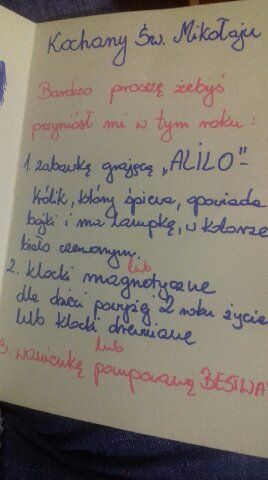 Kochany Św. Mikołaju
Bardzo proszę żebyś
przyniósł mi w tym roku:
1. zabawkę grającą „ALILO”-
królik, który śpiewa, opowiada
bajki i ma lampkę, w kolorze
biało czerwonym.
lub
2. klocki magnetyczne
dla dzieci powyżej 2 roku życia
lub klocki drewniane
lub
3. wanienkę pompowaną BESTWA